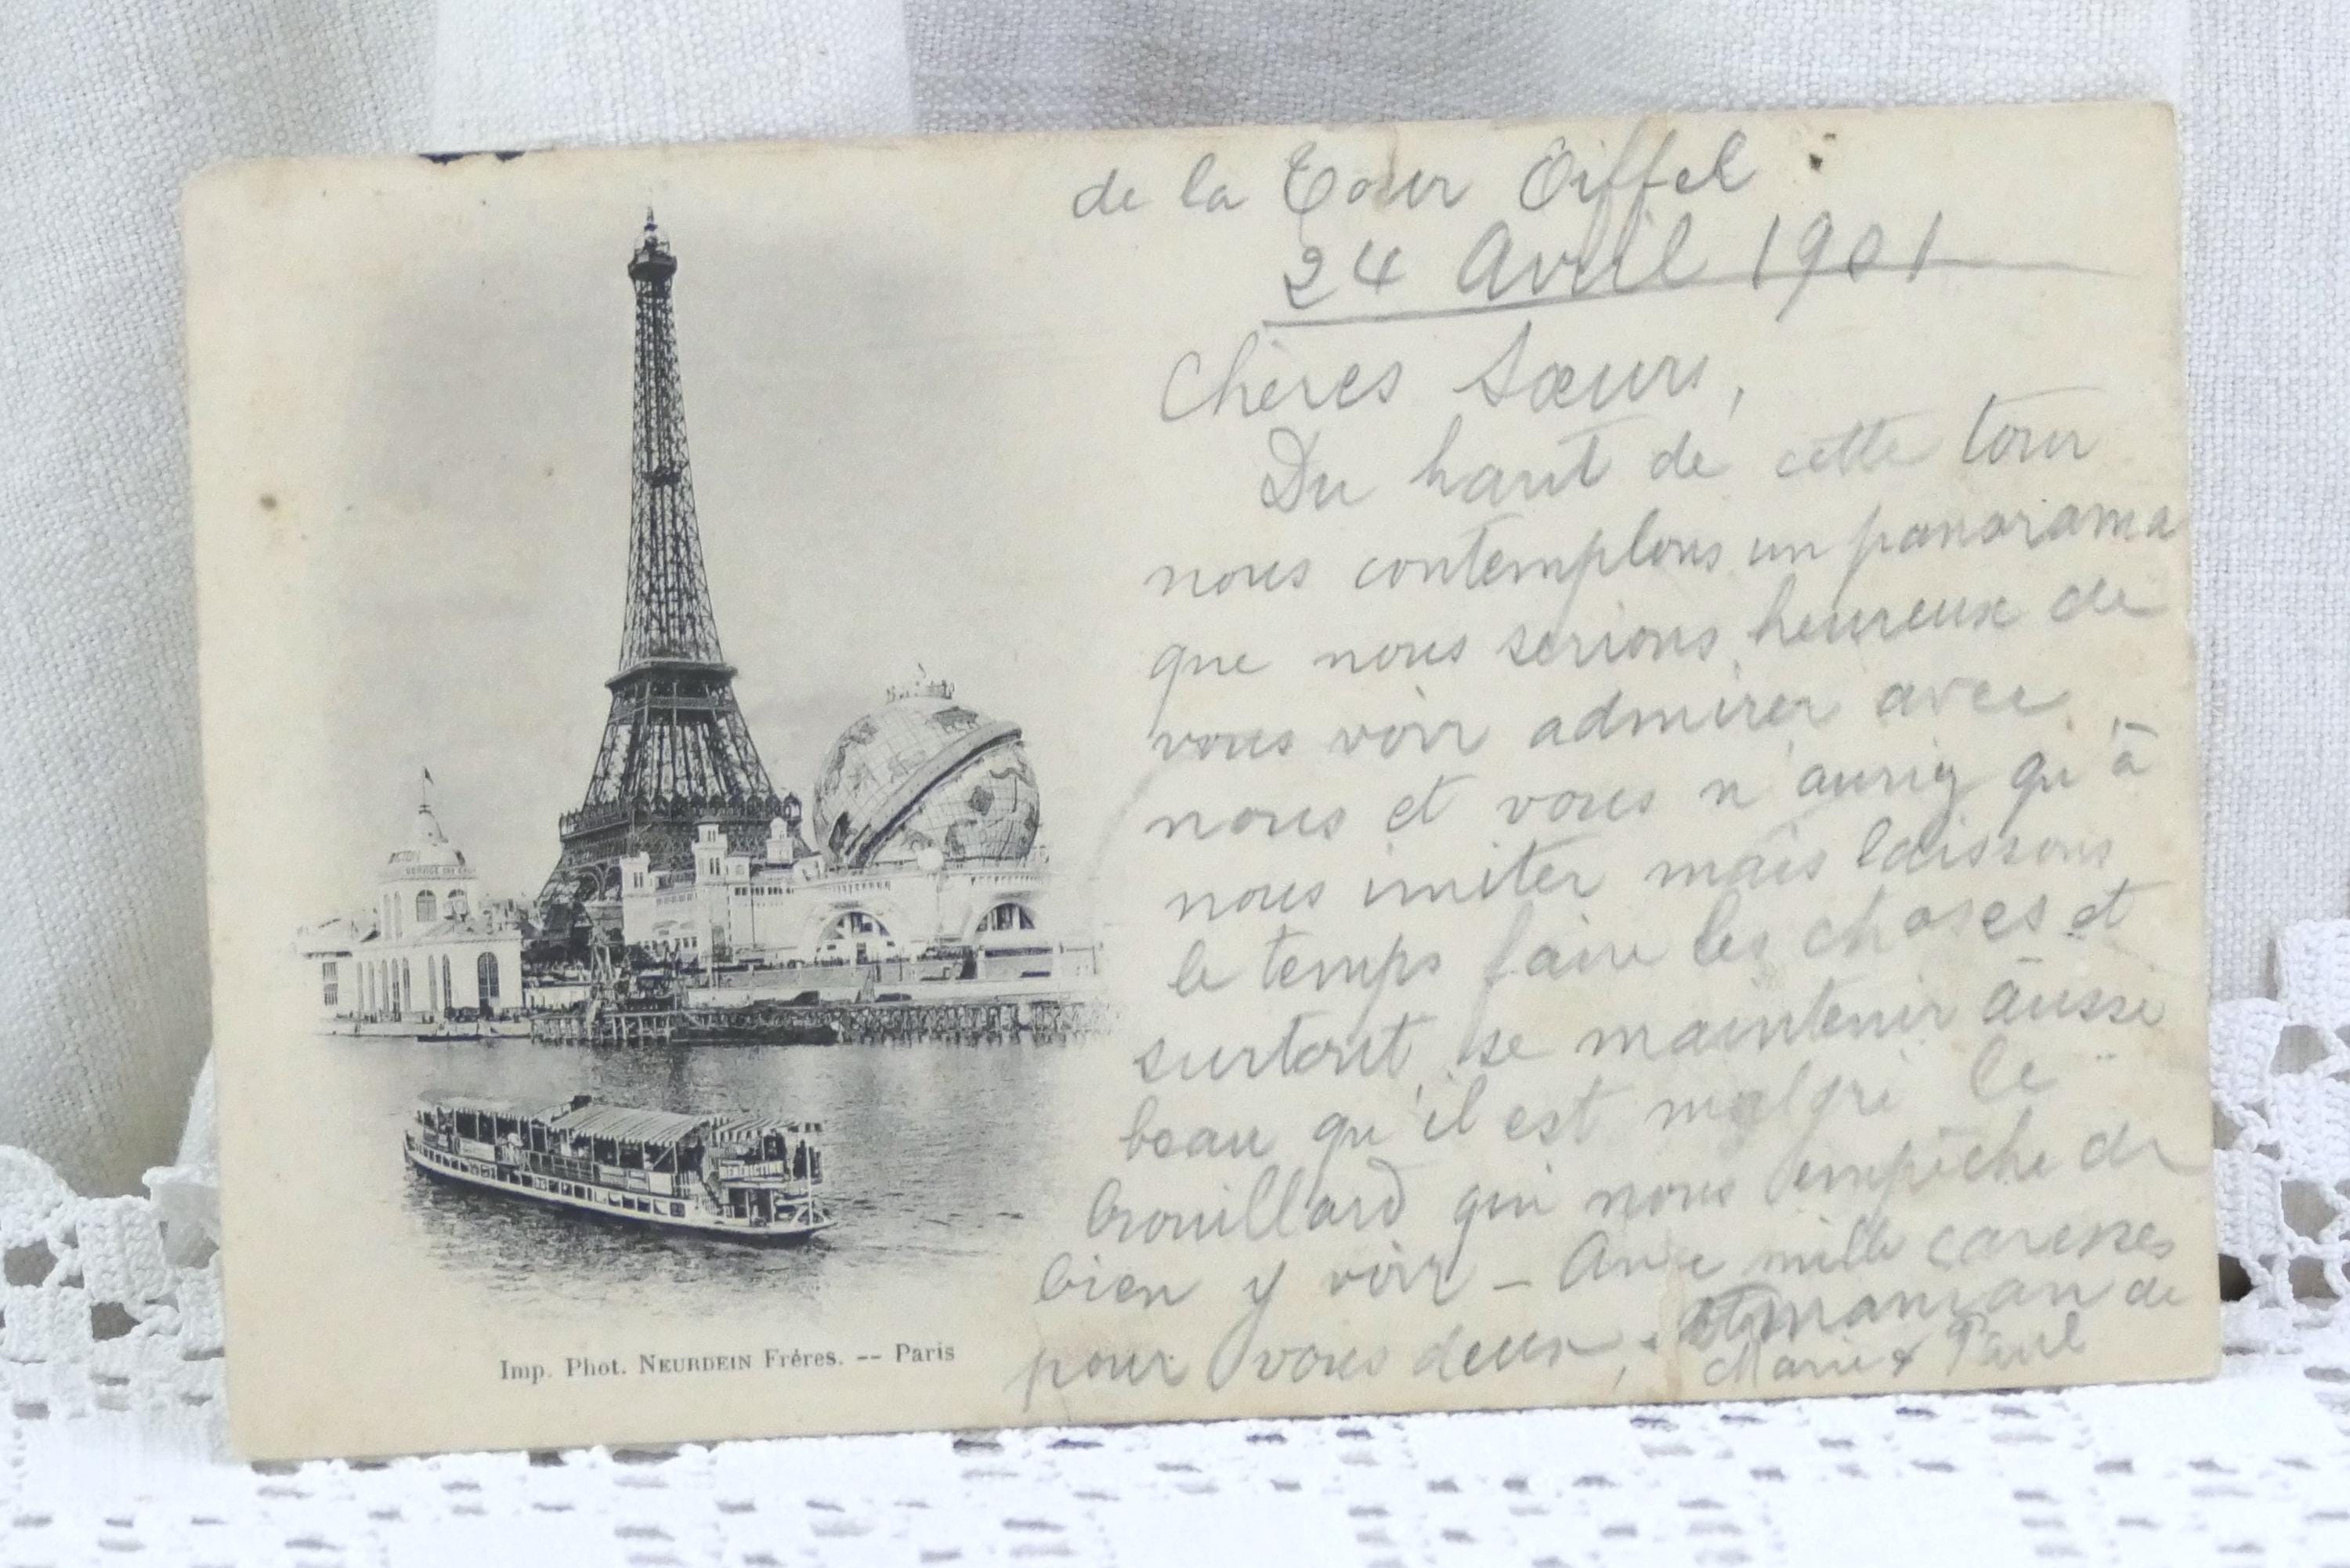 de la Tour Eiffel
24 Avril 1901
Chères Sœurs,
Du haut de cette tour
nous contemplons un panorama
que nous serions heureux de
vous voir admirer avec
nous et vous n'auriez qu'à
nous imiter mais laissons
le temps faire les choses et
surtout se maintenir aussi
beau qu'il est malgré le
brouillard qui nous empêche de
bien y voir - Avec mille caresses
pour vous deux, de
Marie & Paul
SERVICE DES EAUX
BÉNÉDICTINE
Imp. Phot. NEURDEIN Frères. -- Paris